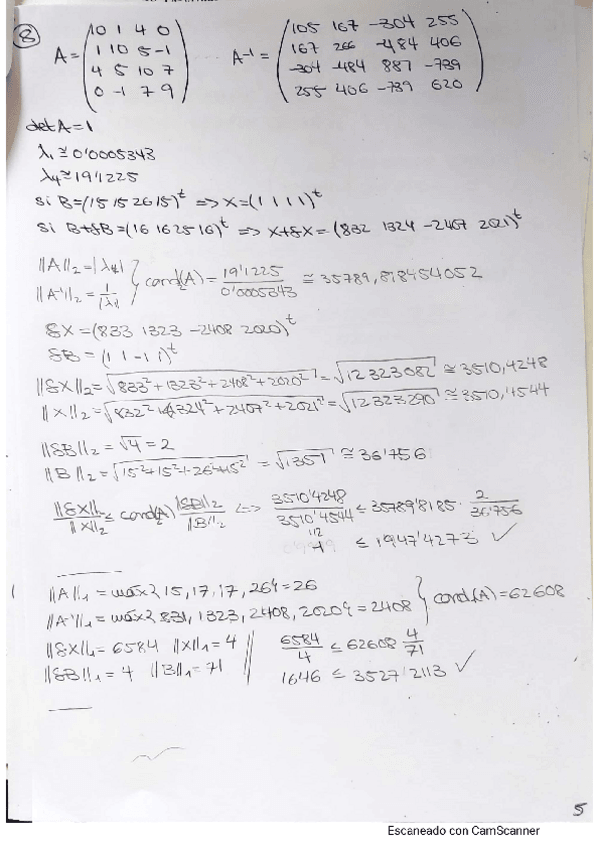 8
A = (10 1 4 0 / 1 10 5 -1 / 4 5 10 7 / 0 -1 7 9) A⁻¹ = (105 167 -304 255 / 167 266 -484 406 / -304 -484 887 -739 / 255 406 -739 620)
det A = 1
λ₁ ≅ 0'0005343
λ₄ ≅ 19'1225
si B = (15 15 26 15)ᵗ => X = (1 1 1 1)ᵗ
si B+δB = (16 16 25 16)ᵗ => X+δX = (832 1324 -2407 2021)ᵗ
||A||₂ = |λ₄|
||A⁻¹||₂ = 1/|λ₁| } cond₂(A) = 19'1225/0'0005343 ≅ 35789,818454052
δX = (833 1323 -2408 2020)ᵗ
δB = (1 1 -1 1)ᵗ
||δX||₂ = √(833² + 1323² + 2408² + 2020²) = √12323082 ≅ 3510,4248
||X||₂ = √(832² + 1324² + 2407² + 2021²) = √12323290 ≅ 3510,4544
||δB||₂ = √4 = 2
||B||₂ = √(15² + 15² + 26² + 15²) = √1351 ≅ 36'756
||δX||₂/||X||₂ ≤ cond₂(A) ||δB||₂/||B||₂ <=> 3510'4248/3510'4544 ≤ 35789'8185 · 2/36'756
≤ 1947'4273 ✓
||A||₁ = máx{15, 17, 17, 26} = 26
||A⁻¹||₁ = máx{831, 1323, 2408, 2020} = 2408 } cond₁(A) = 62608
||δX||₁ = 6584 ||X||₁ = 4 || 6584/4 ≤ 62608 4/71
||δB||₁ = 4 ||B||₁ = 71 || 1646 ≤ 3527'2113 ✓
5
Escaneado con CamScanner